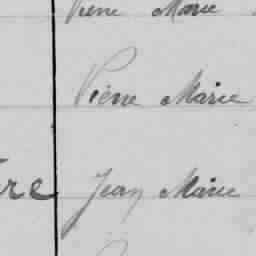 Pierre Marie
Pierre Marie
re Jean Marie